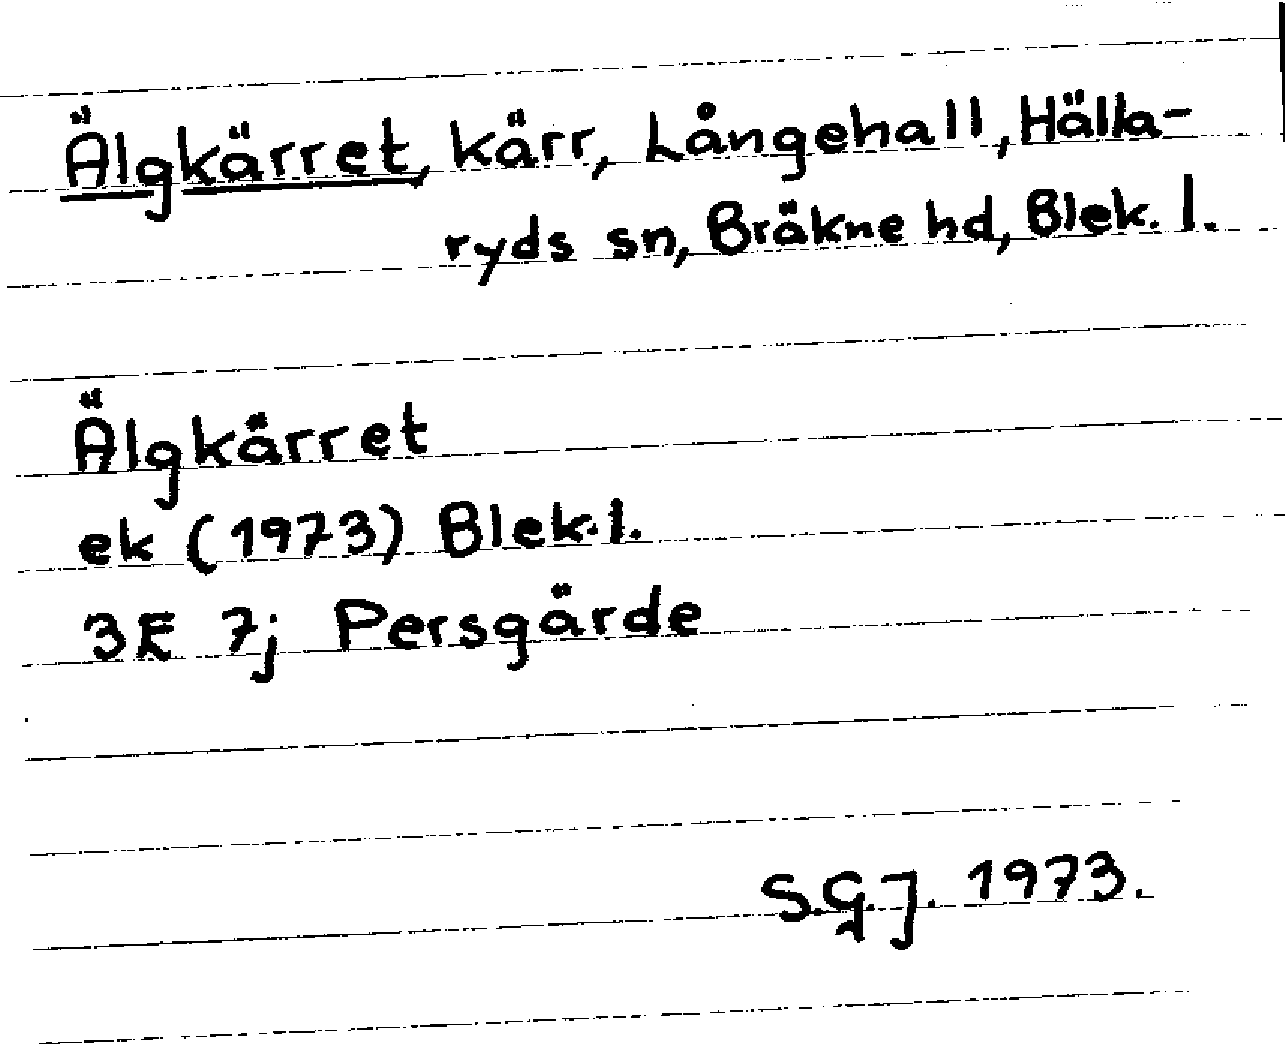 Älgkärret, kärr, Långehall, Hälla-
ryds sn, Bräkne hd, Blek. l.
Älgkärret
ek (1973) Blek. l.
3E 7j Persgärde
S.G.J. 1973.